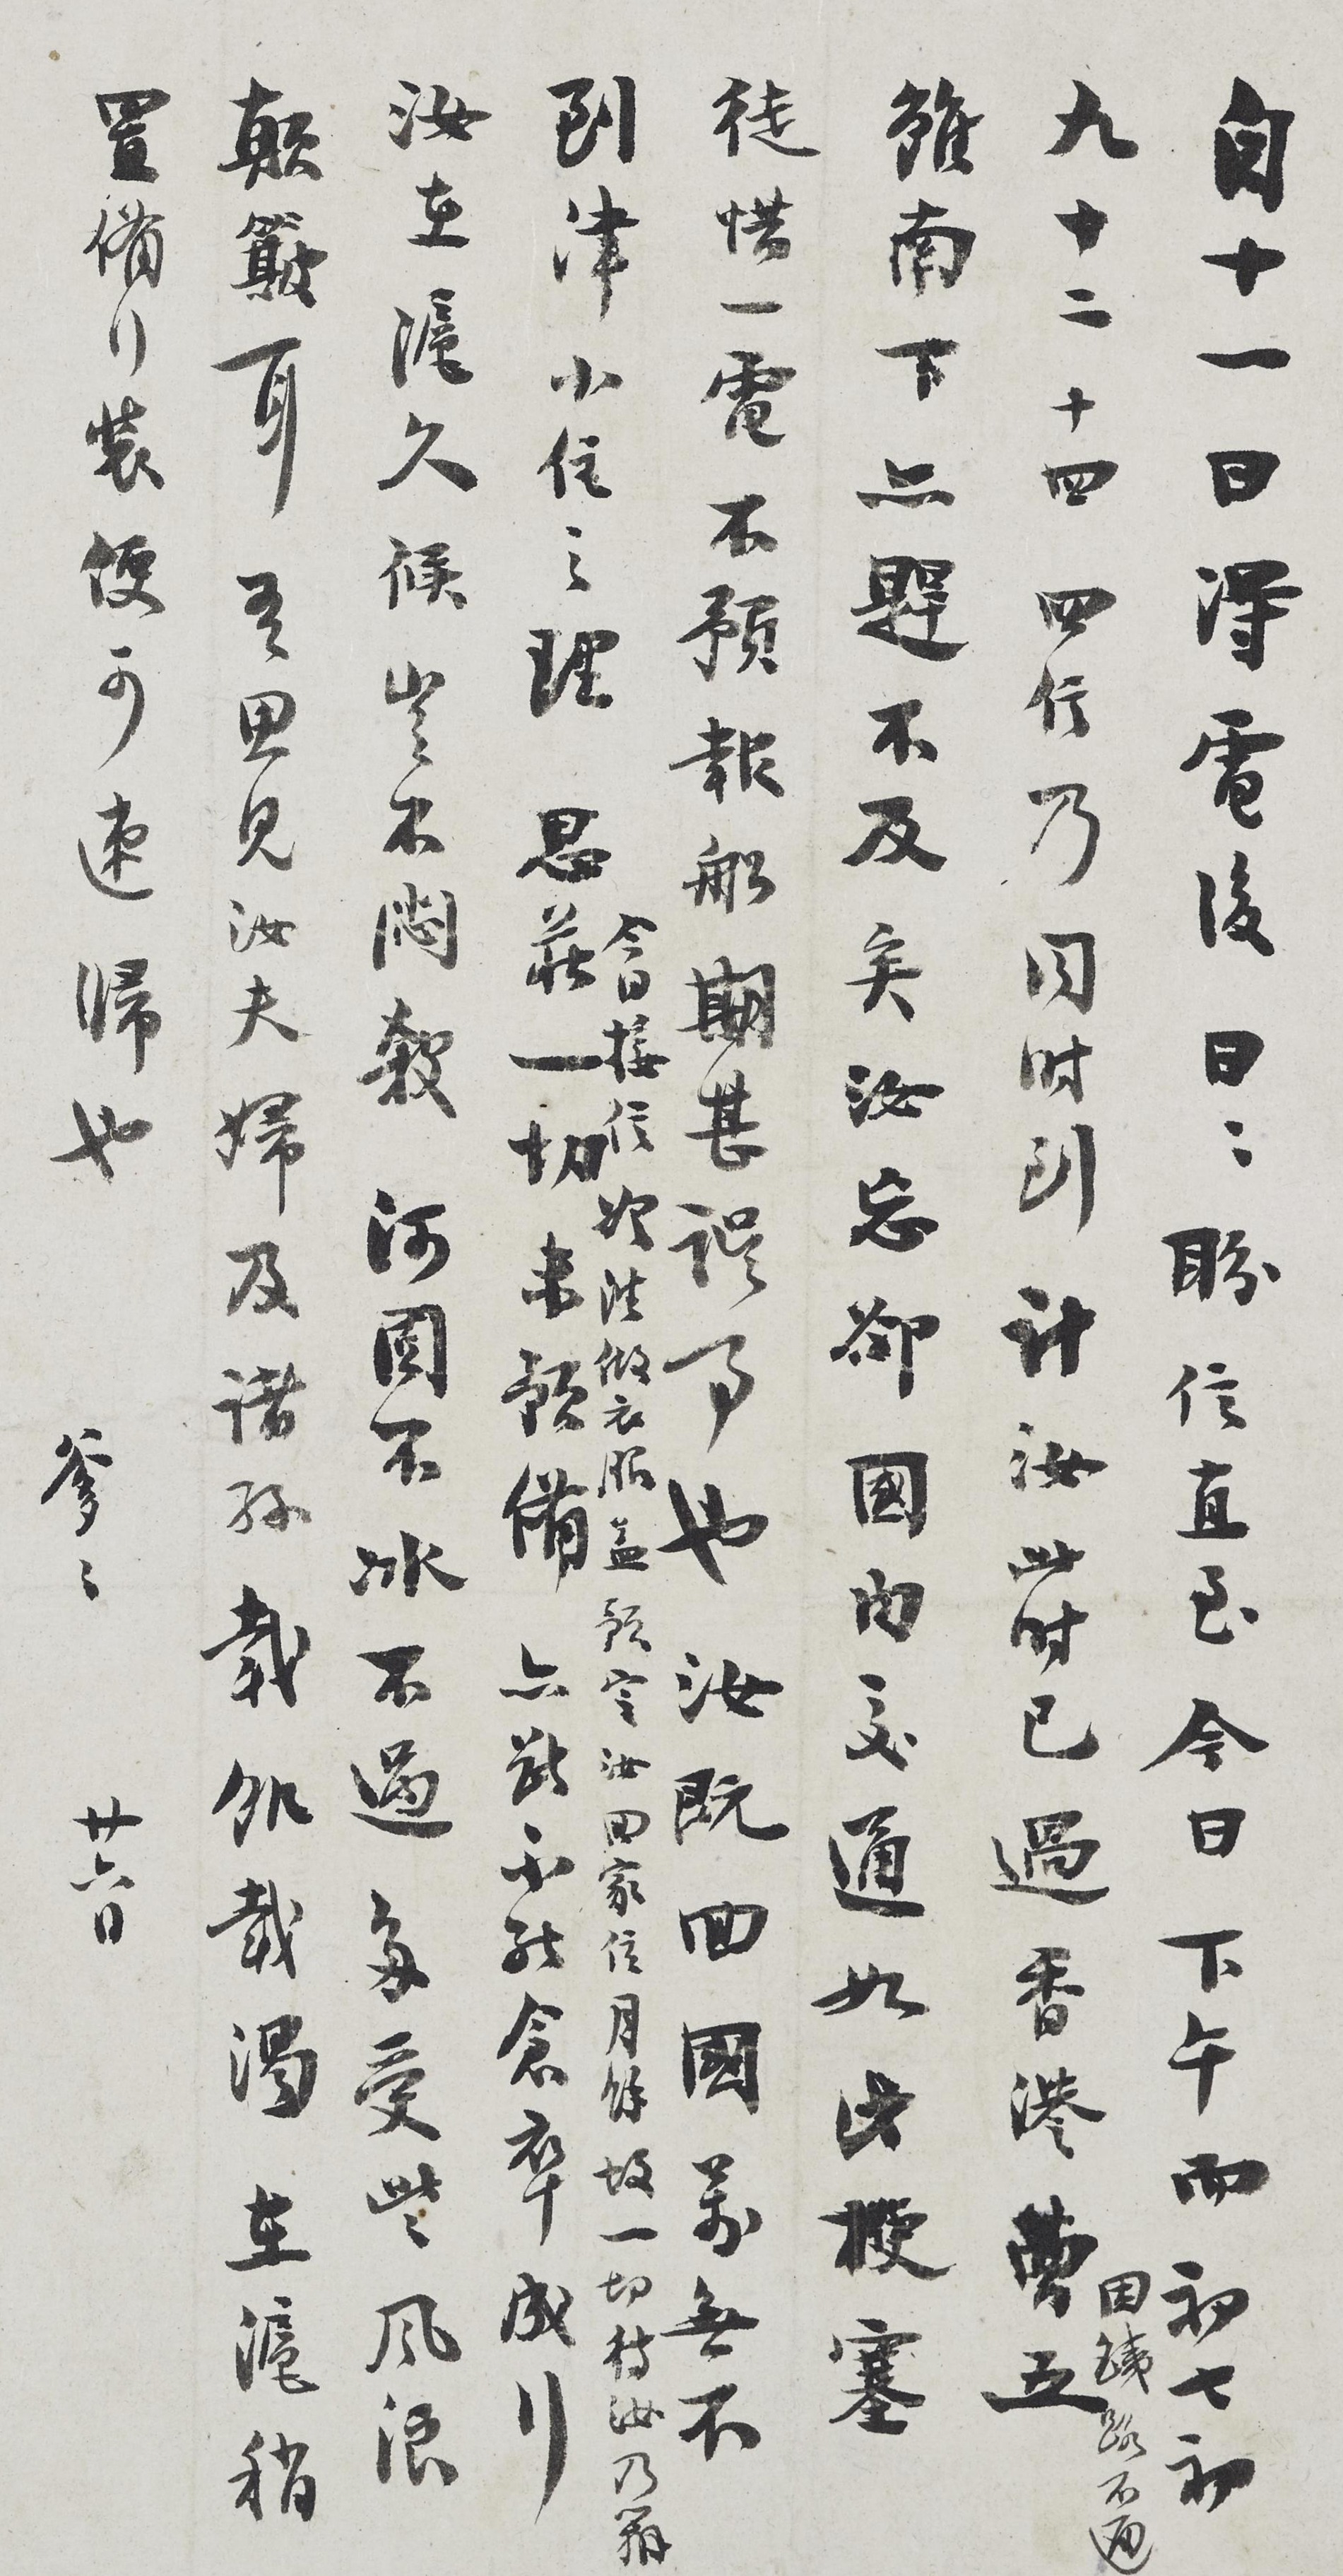 自十一日得電後日〻盼信直至今日下午而初七初
因鐵路不通
九十二十四四信乃同时到計汝此时已過香港曹五
雖南下亦趕不及矣汝忘卻國内交通如此梗塞
徒惜一電不預報船期甚誤事也汝既回國萬無不
今日接信始浣做衣服蓋預定汝回家住月餘故一切待汝乃辦
到津小住之理思莊一切未預備亦断不能倉卒成行
汝在滬久候豈不悶殺河固不冰不過多受些風浪
顛簸耳吾思見汝夫婦及諸孫載飢載渴在滬稍
置備行装便可速歸也
爹〻
廿六日